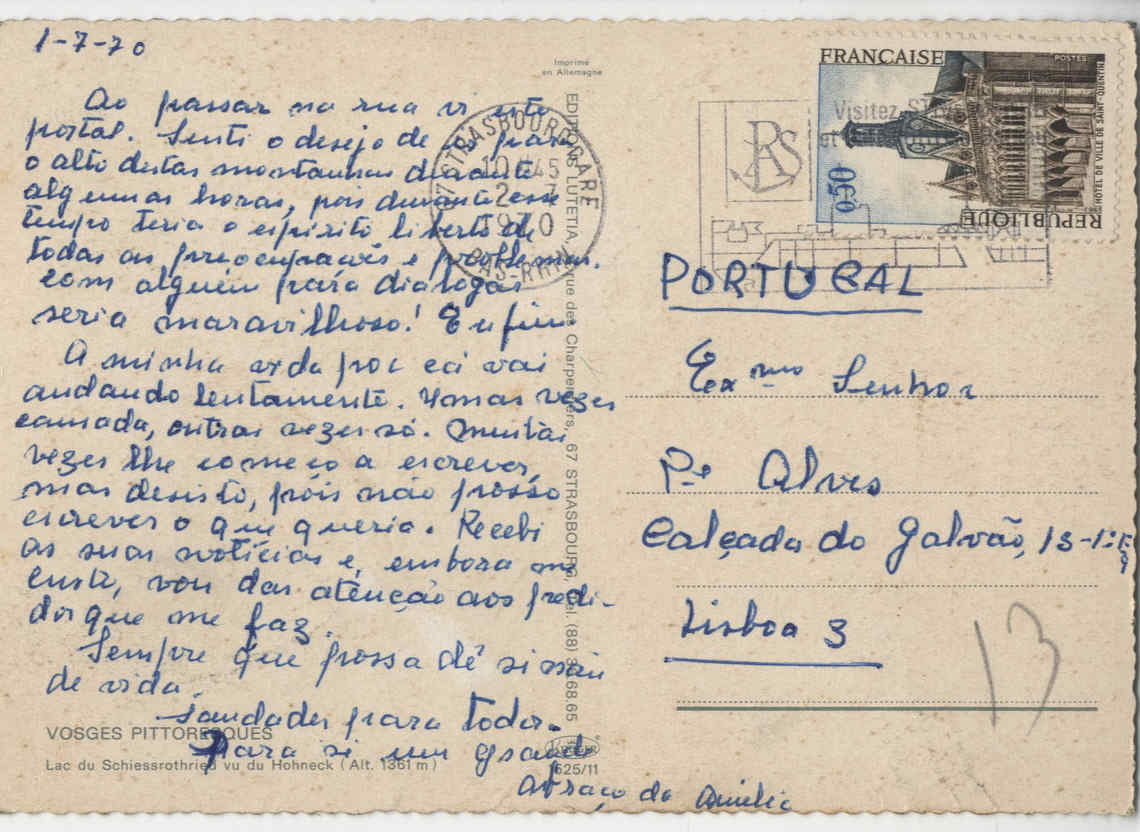 1-7-70
Ao passar na rua vi este
postal. Senti o desejo de ir para
o alto destas montanhas durante
algumas horas, pois durante esse
tempo teria o espírito liberto de
todas as preocupações e problemas.
Com alguém para dialogar
seria maravilhoso! Enfim
A minha vida por cá vai
andando lentamente. Umas vezes
cansada, outras vezes só. Muitas
vezes lhe começo a escrever,
mas desisto, pois não posso
escrever o que queria. Recebi
as suas notícias e, embora me
custe, vou dar atenção aos pedi-
dos que me faz.
Sempre que possa dê sinais
de vida.
Saudades para todos.
Para si um grande
abraço da Amélia
VOSGES PITTORESQUES
Lac du Schiessrothried vu du Hohneck (Alt. 1361 m)
Imprimé
en Allemagne
LUTETIA, rue des Charpentiers, 67 STRASBOURG, Tél. (88) 68.65
625/11
67 STRASBOURG GARE
10 45
2 7
1970
BAS-RHIN
Visitez
PAS
REPUBLIQUE FRANCAISE
POSTES
0,50
HOTEL DE VILLE DE SAINT-QUENTIN
PORTUGAL
Exmo Senhor
Pe Alves
Calçada do Galvão, 13-1º E
Lisboa 3
13